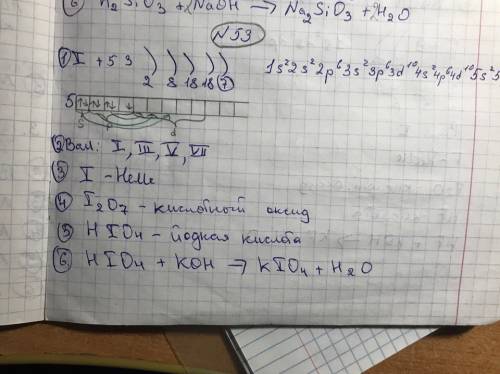 ⑥ H₂SiO₃ + 2NaOH → Na₂SiO₃ + 2H₂O
N53
① I +53 ) ) ) ) ) 1s² 2s² 2p⁶ 3s² 3p⁶ 3d¹⁰ 4s² 4p⁶ 4d¹⁰ 5s² 5
2 8 18 18 7
5 ↑↓ ↑↓ ↑↓ ↓
s p d
② Вал: I, III, V, VII
③ I - неМе
④ I₂O₇ - кислотный оксид
⑤ HIO₄ - йодная кислота
⑥ HIO₄ + KOH → KIO₄ + H₂O